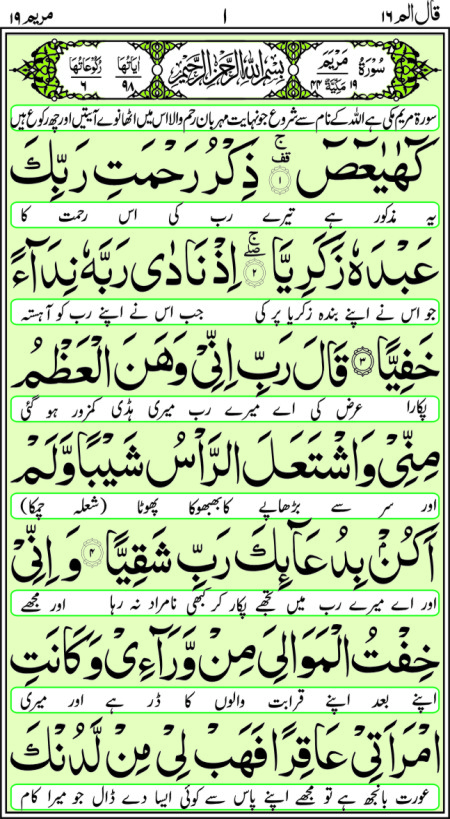 قال الم ١٦
١
مریم ١٩
سُوْرَةُ مَرْيَمَ مَكِّيَّةٌ ١٩ ٤٤
بِسْمِ اللّٰهِ الرَّحْمٰنِ الرَّحِيْمِ
اٰيَاتُهَا ٩٨
رُكُوْعَاتُهَا ٦
سورۃ مریم مکی ہے اللہ کے نام سے شروع جو نہایت مہربان رحم والا اس میں اٹھانوے آیتیں اور چھ رکوع ہیں
كٓهٰيٰعٓصٓ ۚقف ١ ذِكْرُ رَحْمَتِ رَبِّكَ
یہ مذکور ہے تیرے رب کی اس رحمت کا
عَبْدَهٗ زَكَرِيَّا ۖۚ ٢ اِذْ نَادٰى رَبَّهٗ نِدَآءً
جو اس نے اپنے بندہ زکریا پر کی جب اس نے اپنے رب کو آہستہ
خَفِيًّا ٣ قَالَ رَبِّ اِنِّىْ وَهَنَ الْعَظْمُ
پکارا عرض کی اے میرے رب میری ہڈی کمزور ہو گئی
مِنِّىْ وَاشْتَعَلَ الرَّاْسُ شَيْبًا وَّلَمْ
اور سر سے بڑھاپے کا بھبھوکا پھوٹا (شعلہ چمکا)
اَكُنْۢ بِدُعَآئِكَ رَبِّ شَقِيًّا ٤ وَاِنِّىْ
اور اے میرے رب میں تجھے پکار کر کبھی نامراد نہ رہا اور مجھے
خِفْتُ الْمَوَالِىَ مِنْ وَّرَآءِىْ وَكَانَتِ
اپنے بعد اپنے قرابت والوں کا ڈر ہے اور میری
امْرَاَتِىْ عَاقِرًا فَهَبْ لِىْ مِنْ لَّدُنْكَ
عورت بانجھ ہے تو مجھے اپنے پاس سے کوئی ایسا دے ڈال جو میرا کام